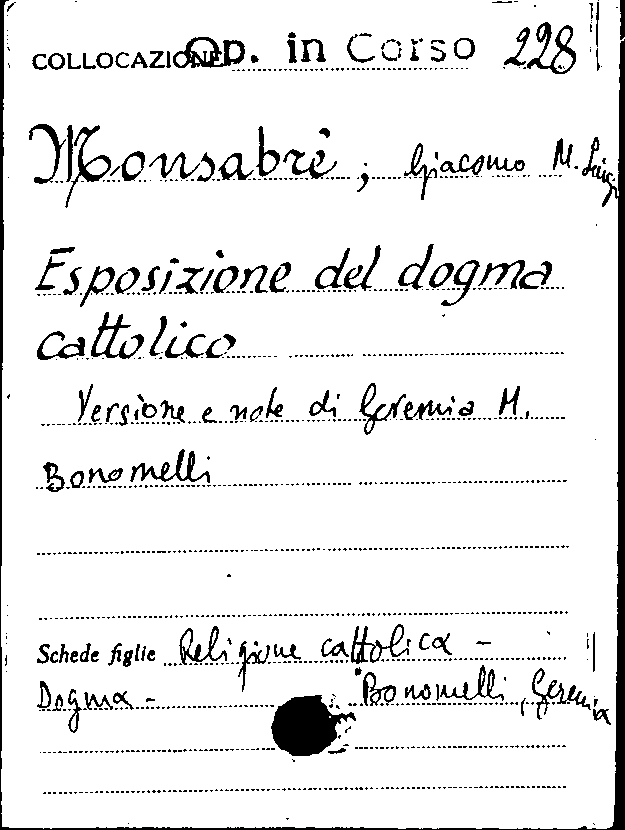 COLLOCAZIONE Op. in Corso 228
Monsabré; Giacomo M. Luigi
Esposizione del dogma
cattolico
Versione e note di Geremia M.
Bonomelli
Schede figlie Religione cattolica -
Dogma - Bonomelli, Geremia